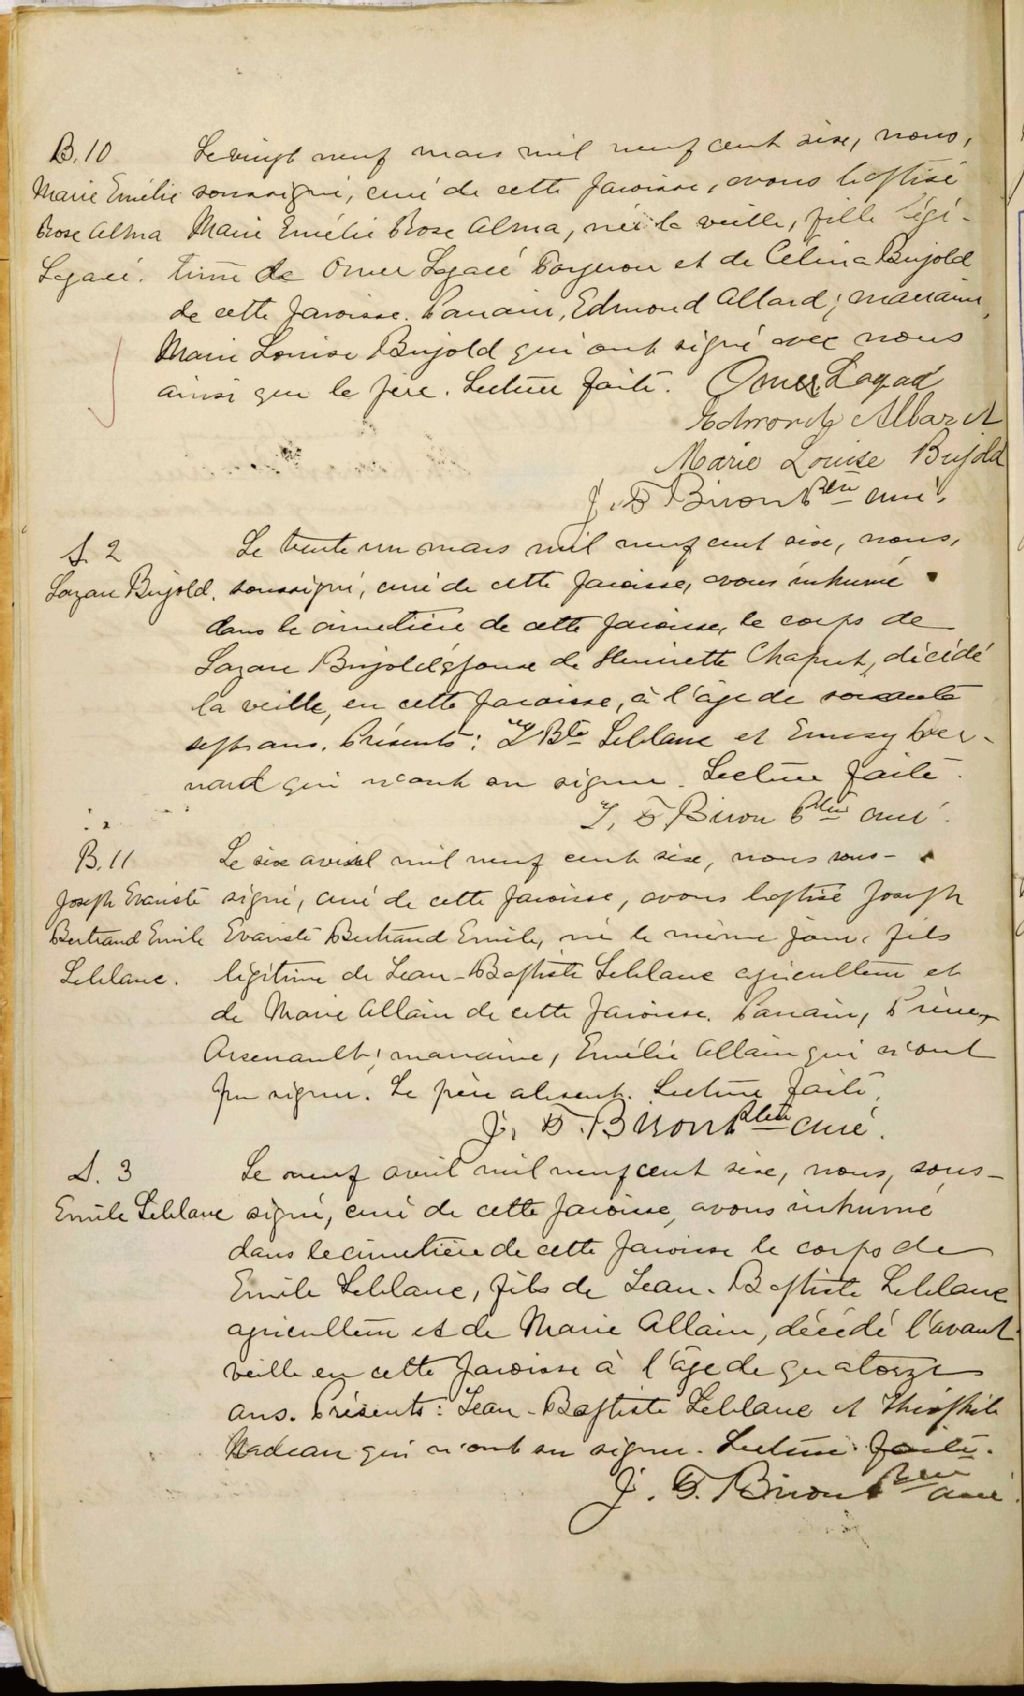 B. 10
Marie Emélie
Rose Alma
Legacé.
Le vingt neuf mars mil neuf cent six, nous,
soussigné, curé de cette paroisse, avons baptisé
Marie Emélie Rose Alma, née la veille, fille légi-
time de Omer Legacé forgeron et de Célina Bujold
de cette paroisse. Parrain, Edmond Allard; marraine,
Marie Louise Bujold qui ont signé avec nous
ainsi que le père. Lecture faite. Omer Lagacé
Edmond Allard
Marie Louise Bujold
J. D. Biron Ptre curé.
S. 2
Lazare Bujold.
Le trente un mars mil neuf cent six, nous,
soussigné, curé de cette paroisse, avons inhumé
dans le cimetière de cette paroisse, le corps de
Lazare Bujold époux de Henriette Chaput, décédé
la veille, en cette paroisse, à l'âge de soixante
sept ans. Présents: J Bte Leblanc et
qui n'ont su signer. Lecture faite.
J. D. Biron Ptre curé.
B. 11
Joseph Evariste
Bertrand Emile
Leblanc.
Le six avril mil neuf cent six, nous sous-
signé, curé de cette paroisse, avons baptisé Joseph
Evariste Bertrand Emile, né le même jour, fils
légitime de Jean-Baptiste Leblanc agriculteur et
de Marie Allain de cette paroisse. Parrain,
Arsenault; marraine, Emélie Allain qui n'ont
pu signer. Le père absent. Lecture faite.
J. D. Biron Ptre curé.
S. 3
Emile Leblanc
Le neuf avril mil neuf cent six, nous, sous-
signé, curé de cette paroisse, avons inhumé
dans le cimetière de cette paroisse le corps de
Emile Leblanc, fils de Jean-Baptiste Leblanc
agriculteur et de Marie Allain, décédé l'avant-
veille en cette paroisse à l'âge de quatorze
ans. Présents: Jean-Baptiste Leblanc et Théophile
Nadeau qui n'ont su signer. Lecture faite.
J. D. Biron Ptre curé.